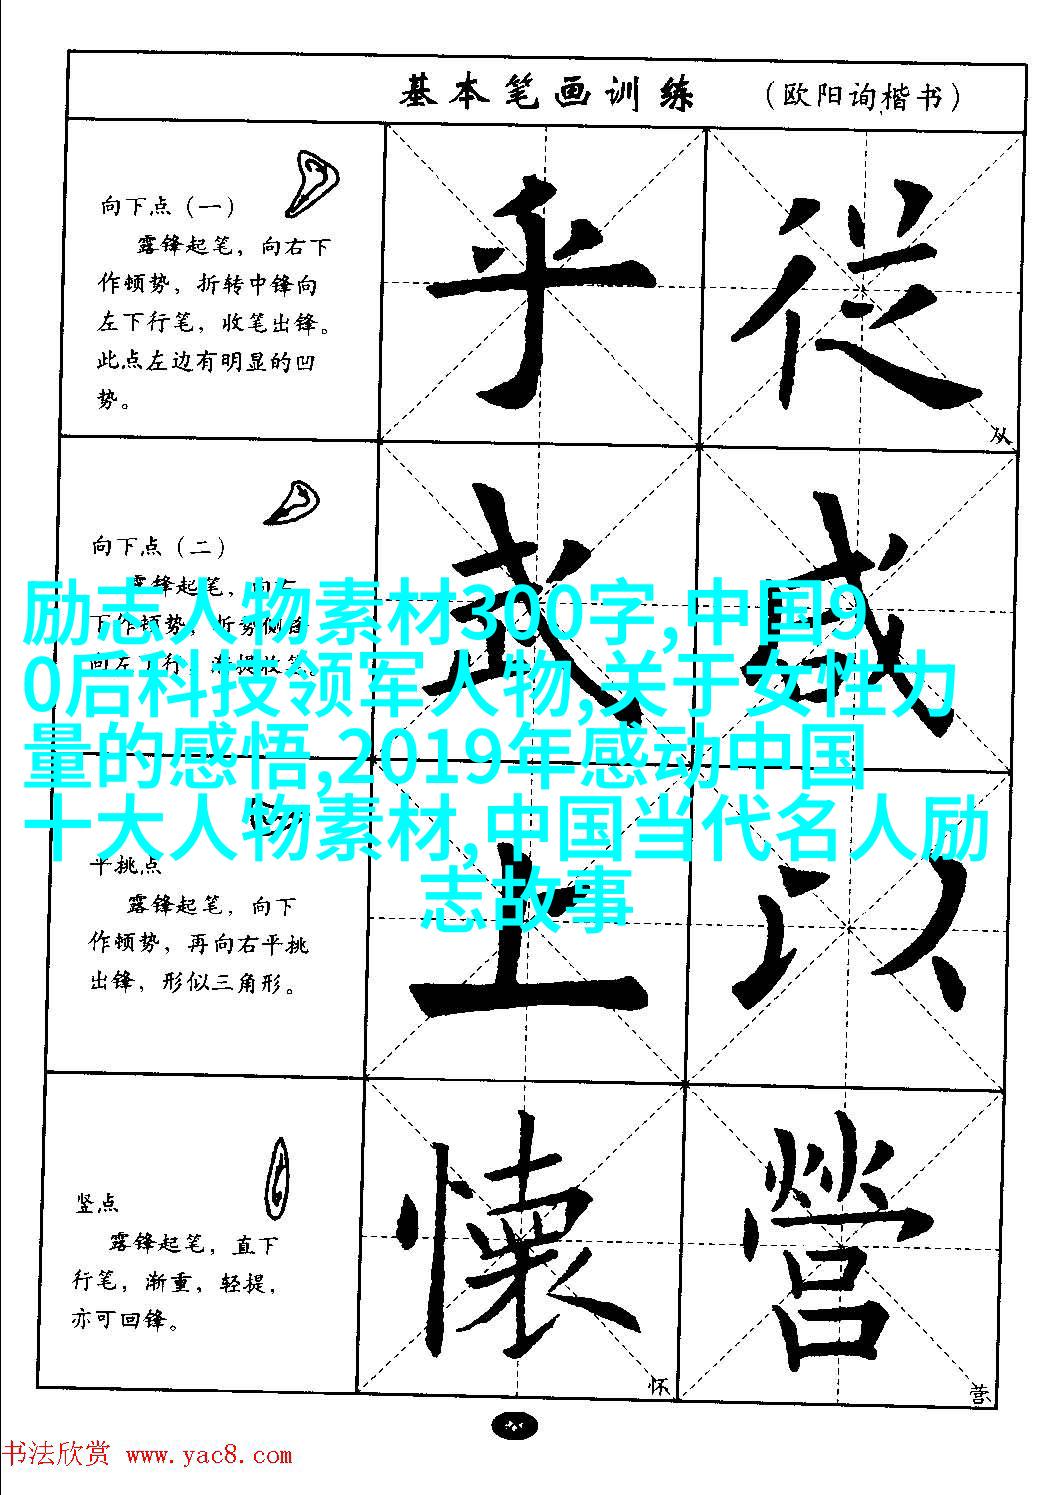 基本笔画训练 （欧阳询楷书）
向下点（一）
露锋起笔，向右下
作顿势，折转中锋向
左下行笔，收笔出锋。
此点左边有明显的凹
势。
乎 從
从
向下点（二）
露锋起笔，向右
下作顿势，折势侧锋
向左下行，渐提收笔。
武 咸
励志人物素材300字,中国9
0后科技领军人物,关于女性力
量的感悟,2019年感动中国
十大人物素材,中国当代名人励
志故事
平挑点
露锋起笔，向下
作顿势，再向右平挑
出锋，形似三角形。
上 以
竖点
露锋起笔，直下
行笔，渐重，轻提，
亦可回锋。
懷 營
怀 营
书法欣赏 www.yac8.com